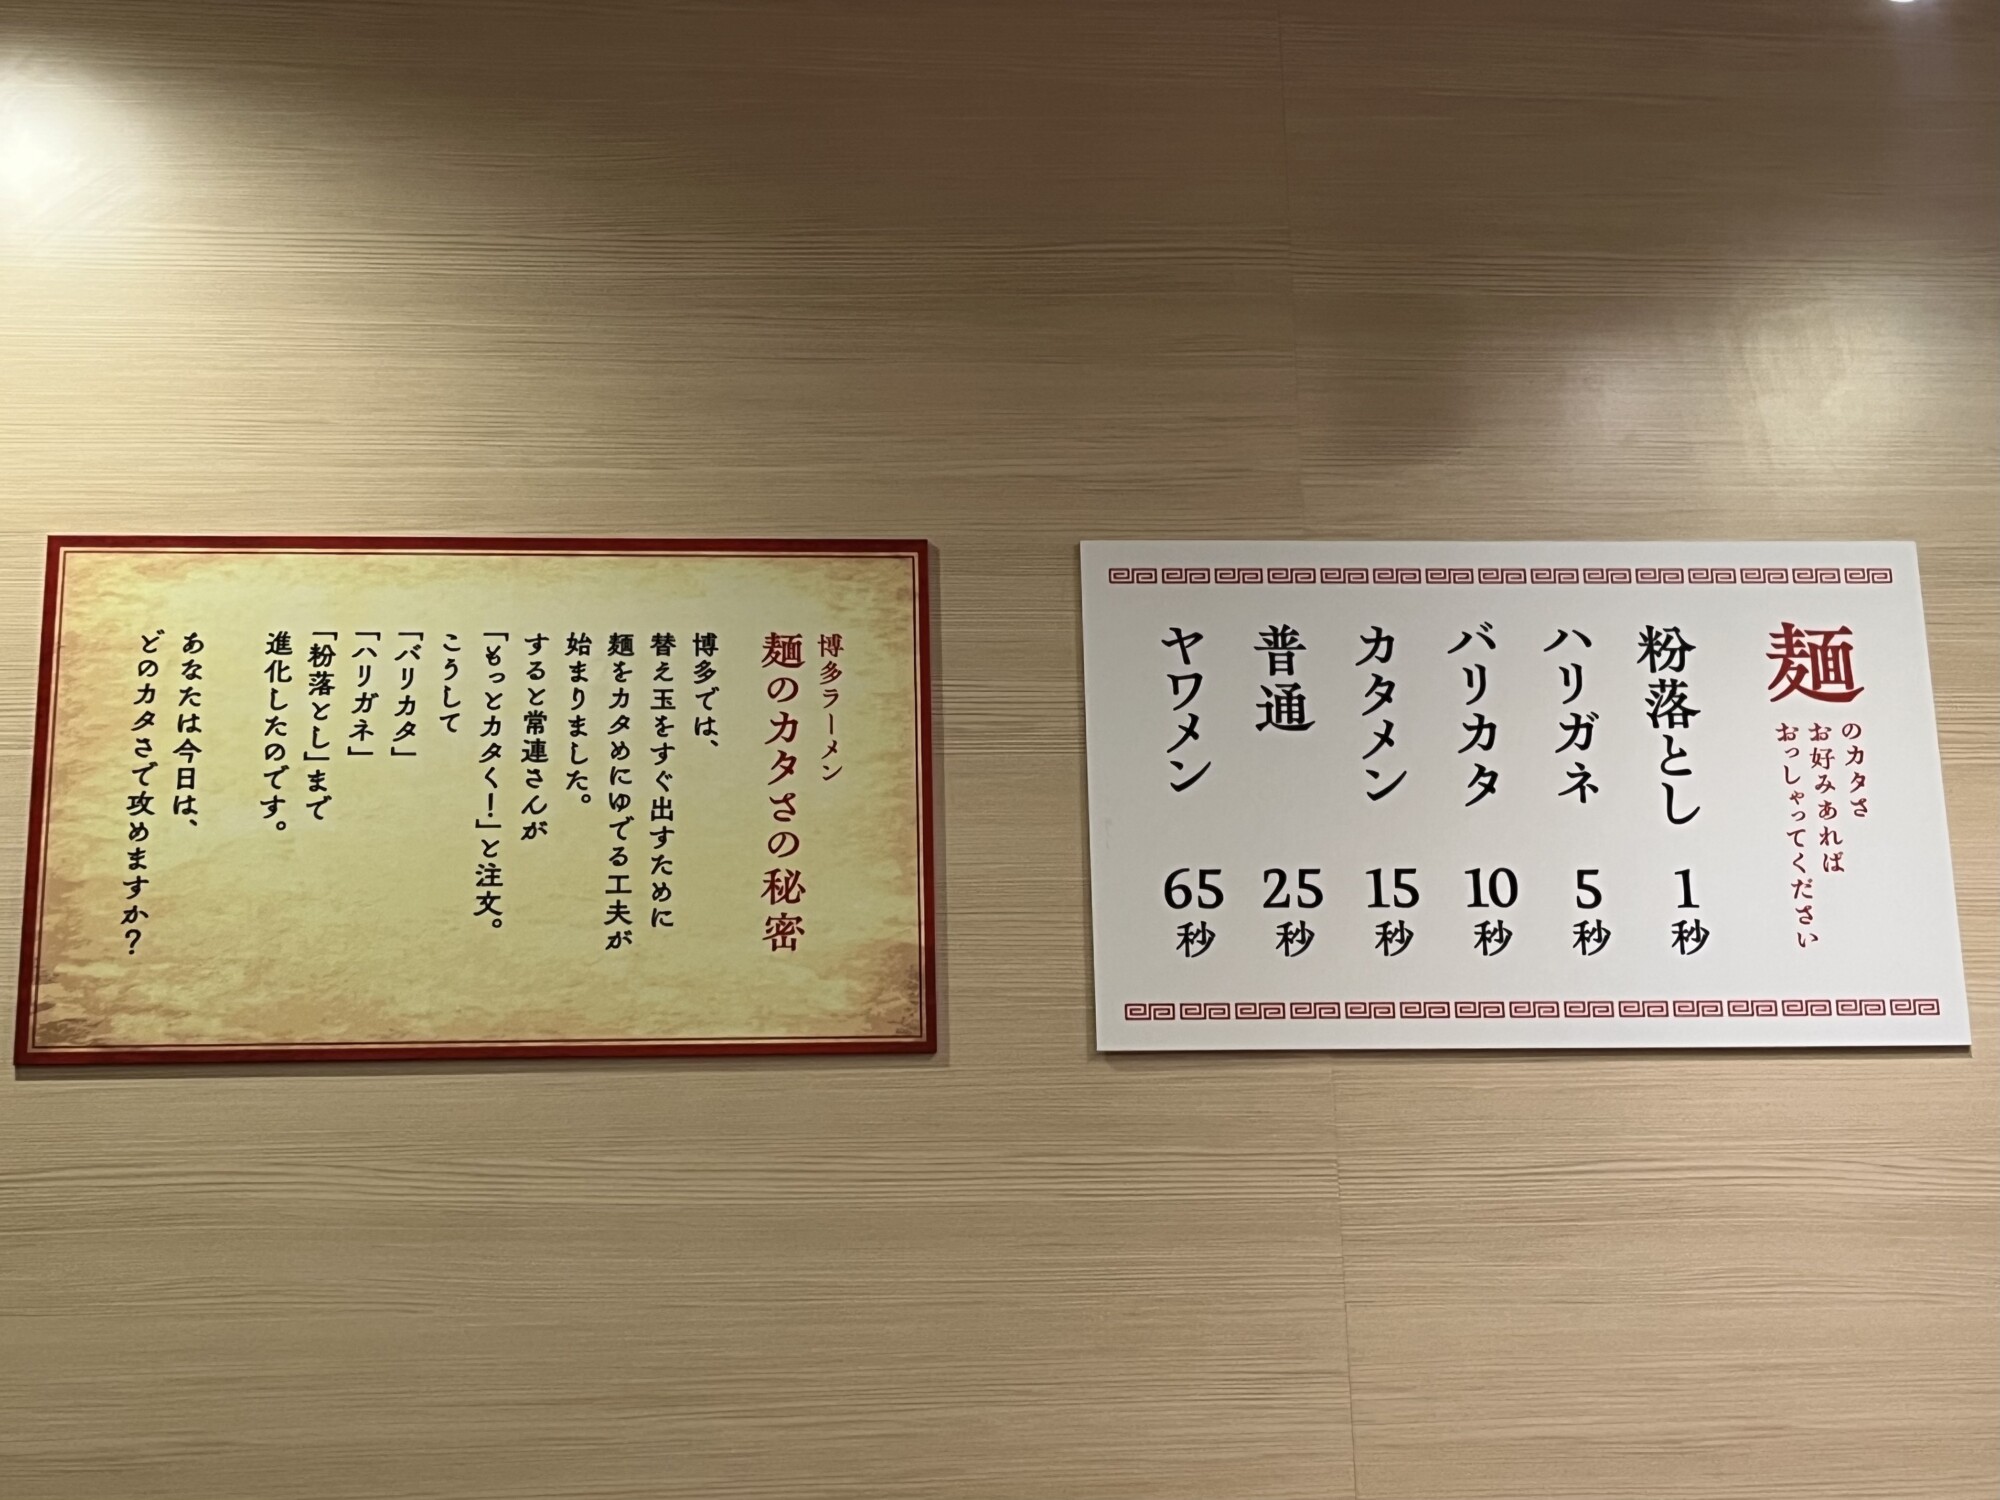 麺
のカタさ
お好みあれば
おっしゃってください
粉落とし 1秒
ハリガネ 5秒
バリカタ 10秒
カタメン 15秒
普通 25秒
ヤワメン 65秒
博多ラーメン
麺のカタさの秘密
博多では、
替え玉をすぐ出すために
麺をカタめにゆでる工夫が
始まりました。
すると常連さんが
「もっとカタく!」と注文。
こうして
「バリカタ」
「ハリガネ」
「粉落とし」まで
進化したのです。
あなたは今日は、
どのカタさで攻めますか?